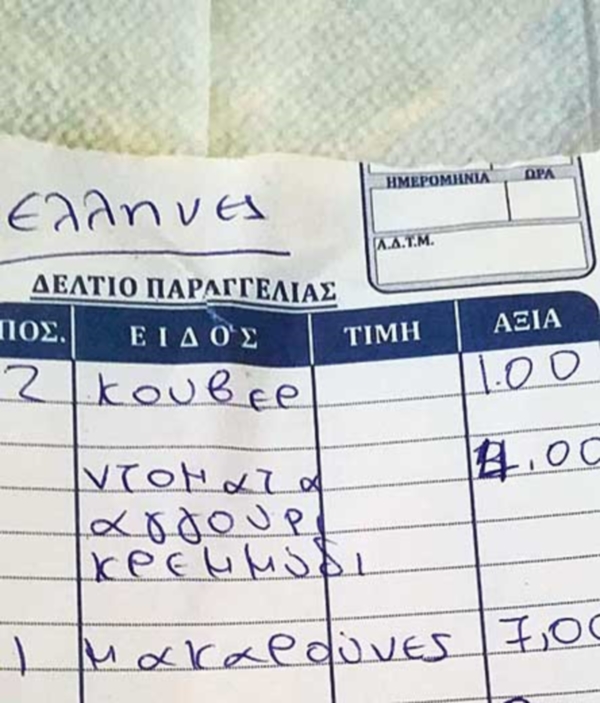 ΗΜΕΡΟΜΗΝΙΑ ΩΡΑ
Ελληνες
Λ.Δ.Τ.Μ.
ΔΕΛΤΙΟ ΠΑΡΑΓΓΕΛΙΑΣ
ΠΟΣ. ΕΙΔΟΣ ΤΙΜΗ ΑΞΙΑ
2 κουβερ 1.00
ντοματα 4.00
αγγουρι
κρεμμυδι
1 μακαρούνες 7,00